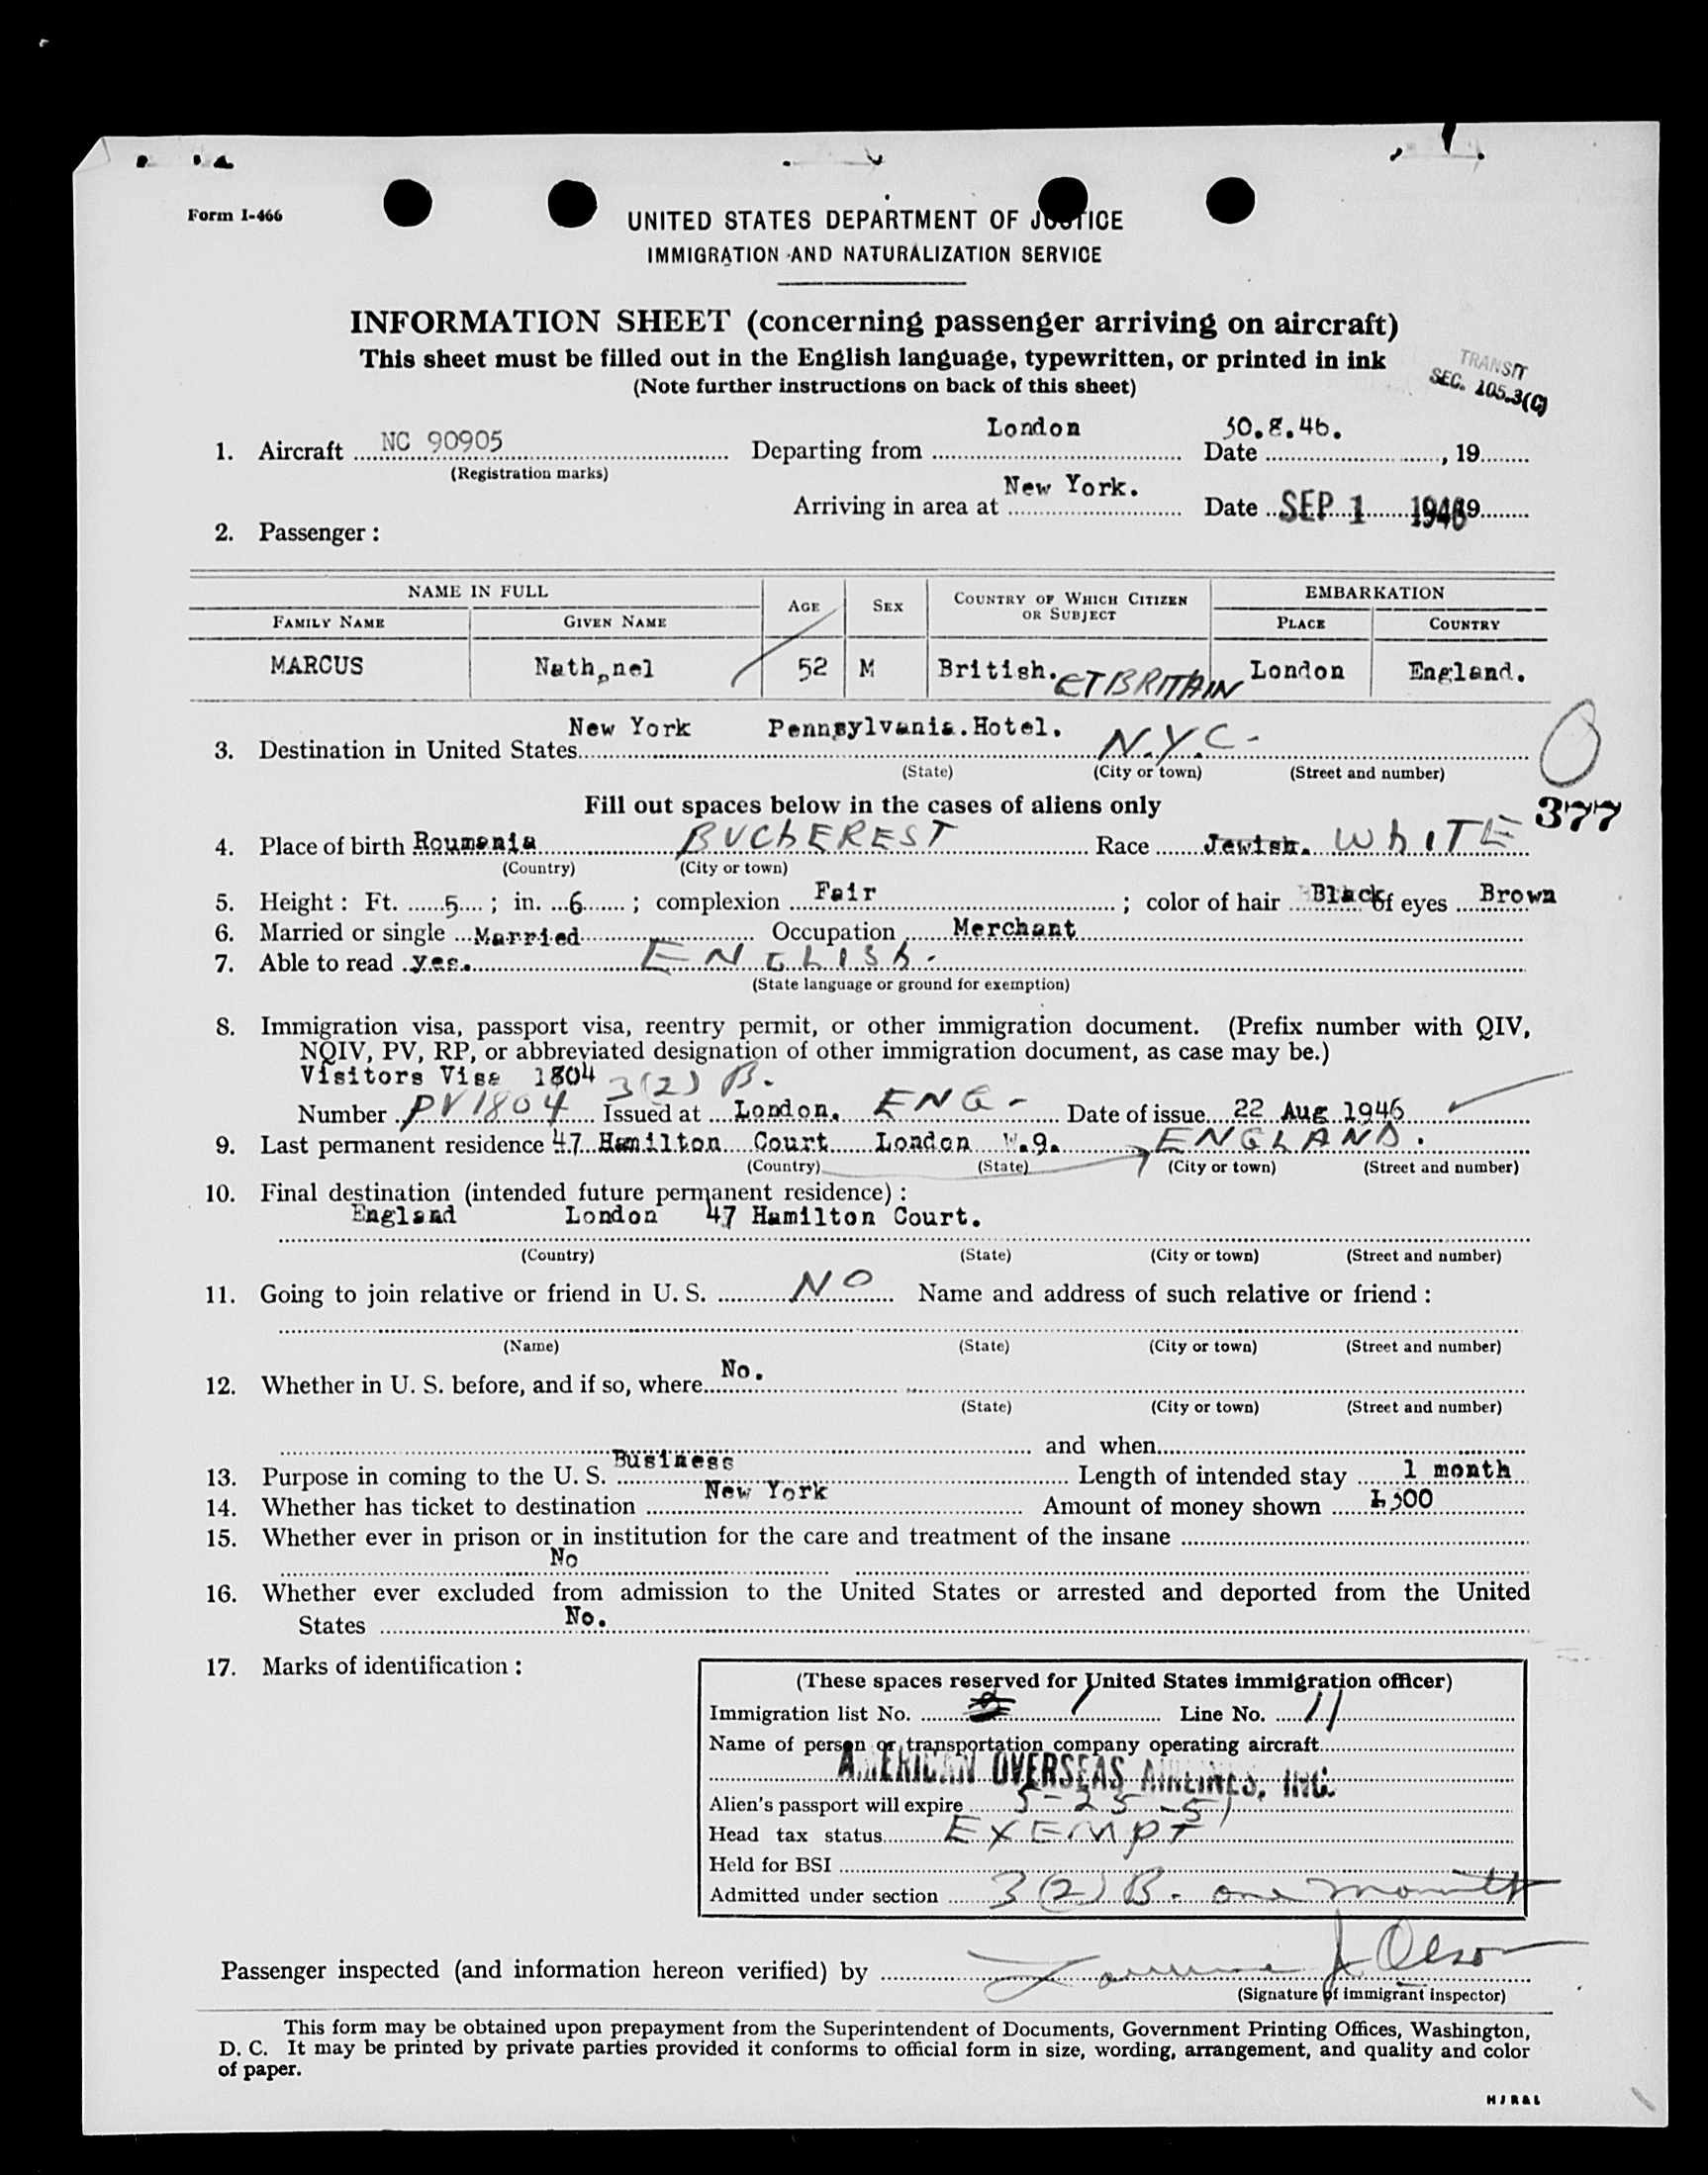 Form I-466
UNITED STATES DEPARTMENT OF JUSTICE
IMMIGRATION AND NATURALIZATION SERVICE
INFORMATION SHEET (concerning passenger arriving on aircraft)
This sheet must be filled out in the English language, typewritten, or printed in ink
(Note further instructions on back of this sheet)
TRANSIT
SEC. 105.3(C)
1. Aircraft NC 90905 Departing from London Date 30.8.46. , 19
(Registration marks)
Arriving in area at New York. Date SEP 1 1946 19
2. Passenger:
NAME IN FULL AGE SEX COUNTRY OF WHICH CITIZEN OR SUBJECT EMBARKATION
FAMILY NAME GIVEN NAME PLACE COUNTRY
MARCUS Nathanel 52 M British. GTBRITAIN London England.
3. Destination in United States New York Pennsylvania.Hotel. N.Y.C-
(State) (City or town) (Street and number)
Fill out spaces below in the cases of aliens only
377
4. Place of birth Roumania BUChEREST Race Jewish. WhITE
(Country) (City or town)
5. Height: Ft. 5 ; in. 6 ; complexion Fair ; color of hair Black of eyes Brown
6. Married or single Married Occupation Merchant
7. Able to read yes. ENGLISh.
(State language or ground for exemption)
8. Immigration visa, passport visa, reentry permit, or other immigration document. (Prefix number with QIV,
NQIV, PV, RP, or abbreviated designation of other immigration document, as case may be.)
Visitors Visa 1804 3(2) B.
Number PV1804 Issued at London. ENG- Date of issue 22 Aug 1946
9. Last permanent residence 47 Hamilton Court London W.9. ENGLAND.
(Country) (State) (City or town) (Street and number)
10. Final destination (intended future permanent residence):
England London 47 Hamilton Court.
(Country) (State) (City or town) (Street and number)
11. Going to join relative or friend in U. S. NO Name and address of such relative or friend:
(Name) (State) (City or town) (Street and number)
12. Whether in U. S. before, and if so, where No.
(State) (City or town) (Street and number)
and when
13. Purpose in coming to the U. S. Business Length of intended stay 1 month
14. Whether has ticket to destination New York Amount of money shown
15. Whether ever in prison or in institution for the care and treatment of the insane
No
16. Whether ever excluded from admission to the United States or arrested and deported from the United
States No.
17. Marks of identification:
(These spaces reserved for United States immigration officer)
Immigration list No. 1 Line No. 11
Name of person or transportation company operating aircraft
AMERICAN OVERSEAS AIRLINES, INC.
Alien's passport will expire 5-25-51
Head tax status EXEMPT
Held for BSI
Admitted under section 3(2)B. one month
Passenger inspected (and information hereon verified) by J Olson
(Signature of immigrant inspector)
This form may be obtained upon prepayment from the Superintendent of Documents, Government Printing Offices, Washington,
D. C. It may be printed by private parties provided it conforms to official form in size, wording, arrangement, and quality and color
of paper.
HJR&L